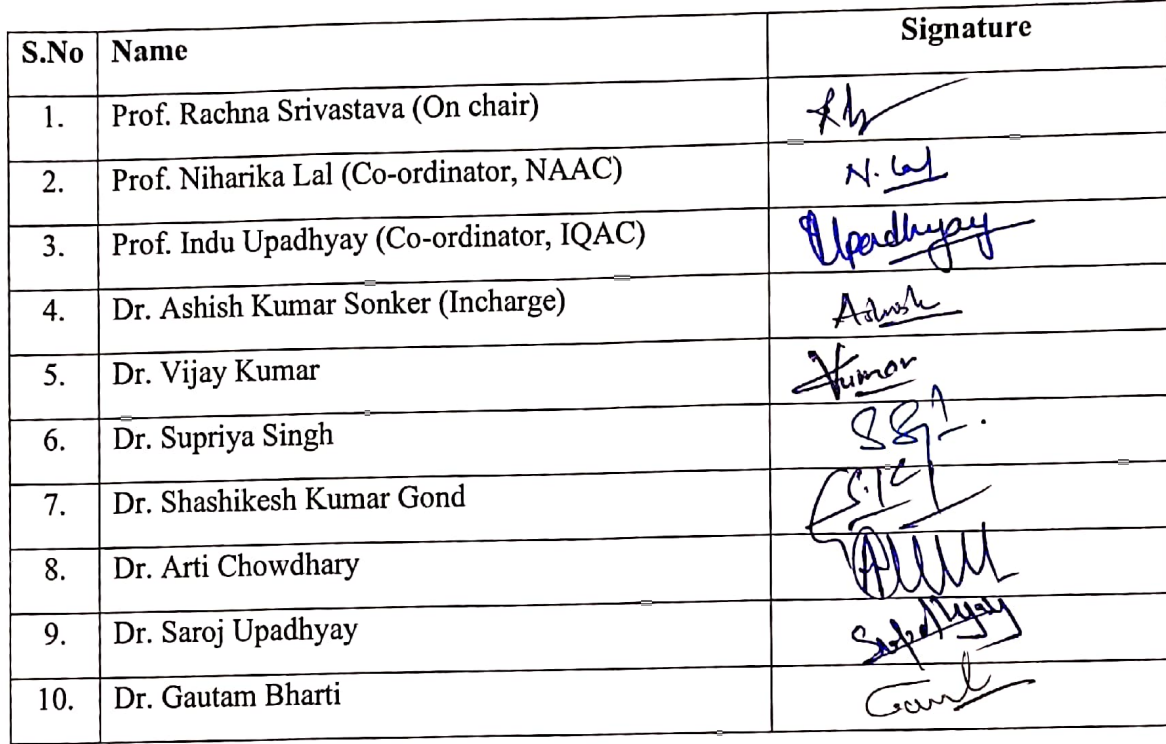 S.No Name Signature
1. Prof. Rachna Srivastava (On chair)
2. Prof. Niharika Lal (Co-ordinator, NAAC) N. Lal
3. Prof. Indu Upadhyay (Co-ordinator, IQAC) Upadhyay
4. Dr. Ashish Kumar Sonker (Incharge) Ashish
5. Dr. Vijay Kumar Kumar
6. Dr. Supriya Singh
7. Dr. Shashikesh Kumar Gond
8. Dr. Arti Chowdhary
9. Dr. Saroj Upadhyay Supadhyay
10. Dr. Gautam Bharti